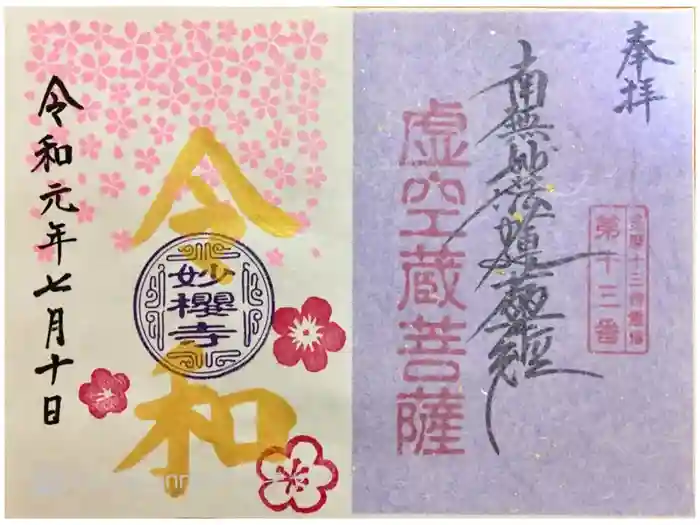 奉拝
南無妙法蓮華経
虚空蔵菩薩
第十三番
令和
妙櫻寺
令和元年七月十日